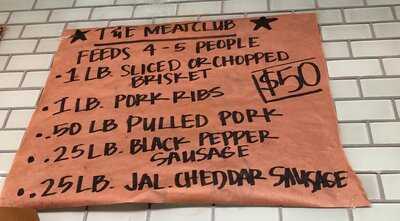 ★ THE MEATCLUB ★
FEEDS 4-5 PEOPLE
• 1 LB. SLICED OR CHOPPED
BRISKET
$50
• 1 LB. PORK RIBS
• .50 LB PULLED PORK
• .25 LB. BLACK PEPPER
SAUSAGE
• .25 LB. JAL. CHEDDAR SAUSAGE